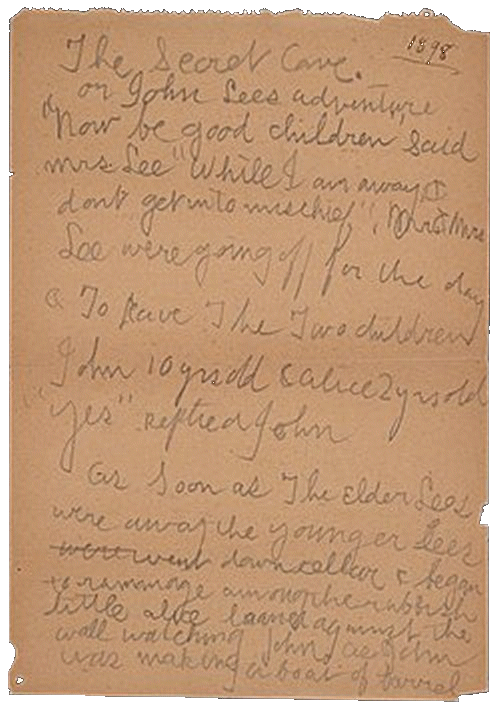 1898
The Secret Cave.
or John Lees adventure
"Now be good children" Said
mrs Lee "While I am away &
dont get into mischief", Mr & Mrs
Lee were going off for the day
& To leave The Two children
John 10 yrs old & alice 2 yrs old
"yes" replied John
As Soon as The Elder Lees
were away the younger Lees
went down cellar & began
to rummage among the rubbish
little alice leaned against the
wall watching John. as John
was making a boat of barrel